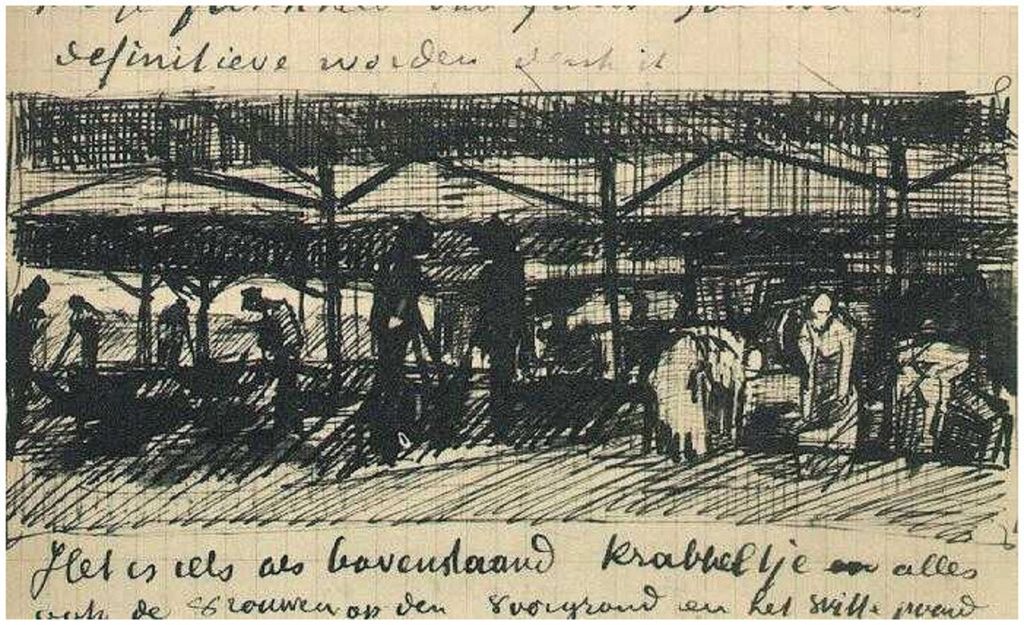 definitieve worden denk ik
Het is iets als bovenstaand krabbeltje en alles
ook de vrouwen op den voorgrond en het witte paard